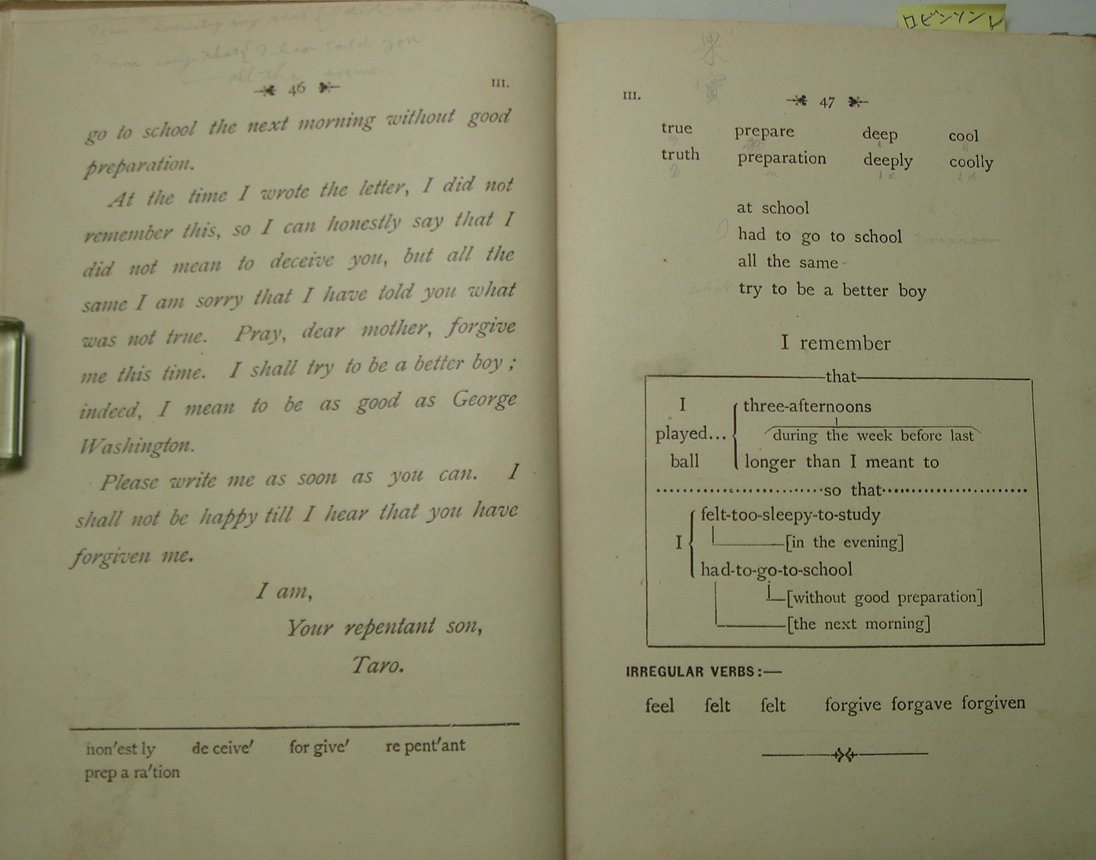 46
III.
go to school the next morning without good
preparation.
At the time I wrote the letter, I did not
remember this, so I can honestly say that I
did not mean to deceive you, but all the
same I am sorry that I have told you what
was not true. Pray, dear mother, forgive
me this time. I shall try to be a better boy;
indeed, I mean to be as good as George
Washington.
Please write me as soon as you can. I
shall not be happy till I hear that you have
forgiven me.
I am,
Your repentant son,
Taro.
hon'est ly de ceive' for give' re pent'ant
prep a ra'tion
ロビンソン
III.
47
true prepare deep cool
truth preparation deeply coolly
at school
had to go to school
all the same
try to be a better boy
I remember
that
I three-afternoons
played... during the week before last
ball longer than I meant to
so that
felt-too-sleepy-to-study
I [in the evening]
had-to-go-to-school
[without good preparation]
[the next morning]
IRREGULAR VERBS:—
feel felt felt forgive forgave forgiven